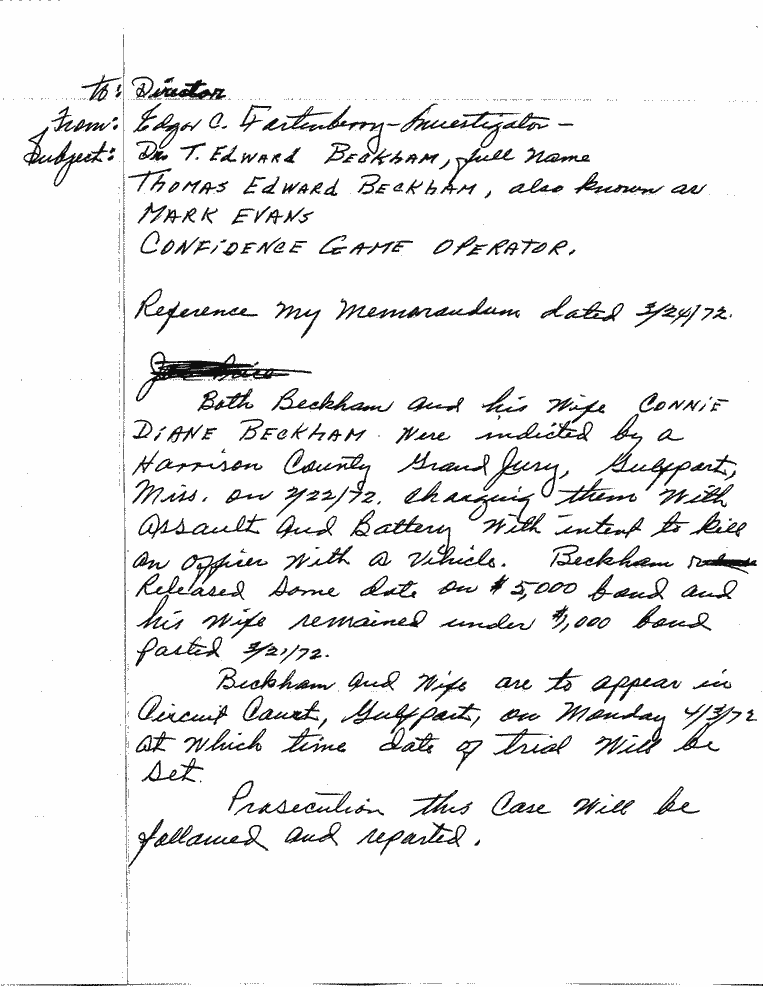 To: Director
From: Edgar C. Fortenberry - Investigator -
Subject: Dr. T. EDWARD BECKHAM, full name
THOMAS EDWARD BECKHAM, also known as
MARK EVANS
CONFIDENCE GAME OPERATOR.
Reference my Memorandum dated 3/24/72.
Both Beckham and his Wife CONNIE
DIANE BECKHAM Were indicted by a
Harrison County Grand Jury, Gulfport,
Miss. on 3/22/72. charging them With
Assault and Battery With intent to kill
an officer With a Vehicle. Beckham
Released Same date on $5,000 bond and
his Wife remained under $1,000 bond
Posted 3/21/72.
Beckham and Wife are to appear in
Circuit Court, Gulfport, on Monday 4/3/72
at Which time date of trial Will be
Set.
Prosecution this Case Will be
followed and reported.